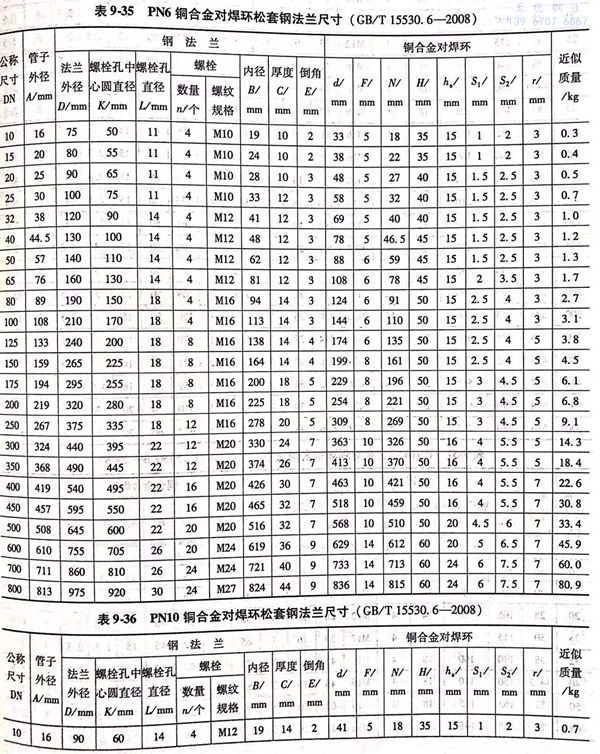 至德钢业
139 6707 6667
表 9-35 PN6 铜合金对焊环松套钢法兰尺寸 (GB/T 15530.6—2008)
公称尺寸 DN 管子外径 A/mm 钢法兰 铜合金对焊环 近似质量 /kg
法兰外径 D/mm 螺栓孔中心圆直径 K/mm 螺栓孔直径 L/mm 螺栓 内径 B/mm 厚度 C/mm 倒角 E/mm d/mm F/mm N/mm H/mm h₈/mm S₁/mm S₂/mm r/mm
数量 n/个 螺纹规格
10 16 75 50 11 4 M10 19 10 2 33 5 18 35 15 1 2 3 0.3
15 20 80 55 11 4 M10 24 10 2 38 5 22 35 15 1 2 3 0.4
20 25 90 65 11 4 M10 28 10 3 48 5 27 40 15 1.5 2.5 3 0.5
25 30 100 75 11 4 M10 33 12 3 58 5 32 40 15 1.5 2.5 3 0.7
32 38 120 90 14 4 M12 41 12 3 69 5 40 40 15 1.5 2.5 3 1.0
40 44.5 130 100 14 4 M12 48 12 3 78 5 46.5 45 15 1.5 2.5 3 1.2
50 57 140 110 14 4 M12 62 12 3 88 6 59 45 15 1.5 2.5 3 1.3
65 76 160 130 14 4 M12 81 12 3 108 6 78 45 15 2 3.5 3 1.7
80 89 190 150 18 4 M16 94 14 3 124 6 91 50 15 2.5 4 3 2.7
100 108 210 170 18 4 M16 113 14 3 144 6 110 50 15 2.5 4 3 3.1
125 133 240 200 18 8 M16 138 14 4 174 6 135 50 15 2.5 4 5 3.8
150 159 265 225 18 8 M16 164 14 4 199 8 161 50 15 2.5 4 5 4.5
175 194 295 255 18 8 M16 200 18 5 229 8 196 50 15 3 4.5 5 6.1
200 219 320 280 18 8 M16 225 18 5 254 8 221 50 15 3 4.5 5 6.8
250 267 375 335 18 12 M16 278 20 5 309 8 269 50 15 3 4.5 5 9.1
300 324 440 395 22 12 M20 330 24 7 363 10 326 50 16 4 5.5 5 14.3
350 368 490 445 22 12 M20 374 26 7 413 10 370 50 16 4 5.5 5 18.4
400 419 540 495 22 16 M20 426 30 7 463 10 421 50 16 4 5.5 7 22.6
450 457 595 550 22 16 M20 465 32 7 518 10 459 50 16 4 5.5 7 30.8
500 508 645 600 22 20 M20 516 32 7 568 10 510 50 20 4.5 6 7 33.4
600 610 755 705 26 20 M24 619 36 9 629 14 612 60 20 5 6.5 7 45.9
700 711 860 810 26 24 M24 721 40 9 733 14 713 60 24 6 7.5 7 60.0
800 813 975 920 30 24 M27 824 44 9 836 14 815 60 24 6 7.5 7 80.9
表 9-36 PN10 铜合金对焊环松套钢法兰尺寸 (GB/T 15530.6—2008)
公称尺寸 DN 管子外径 A/mm 钢法兰 铜合金对焊环 近似质量 /kg
法兰外径 D/mm 螺栓孔中心圆直径 K/mm 螺栓孔直径 L/mm 螺栓 内径 B/mm 厚度 C/mm 倒角 E/mm d/mm F/mm N/mm H/mm h₈/mm S₁/mm S₂/mm r/mm
数量 n/个 螺纹规格
10 16 90 60 14 4 M12 19 14 2 41 5 18 35 15 1 2 3 0.7